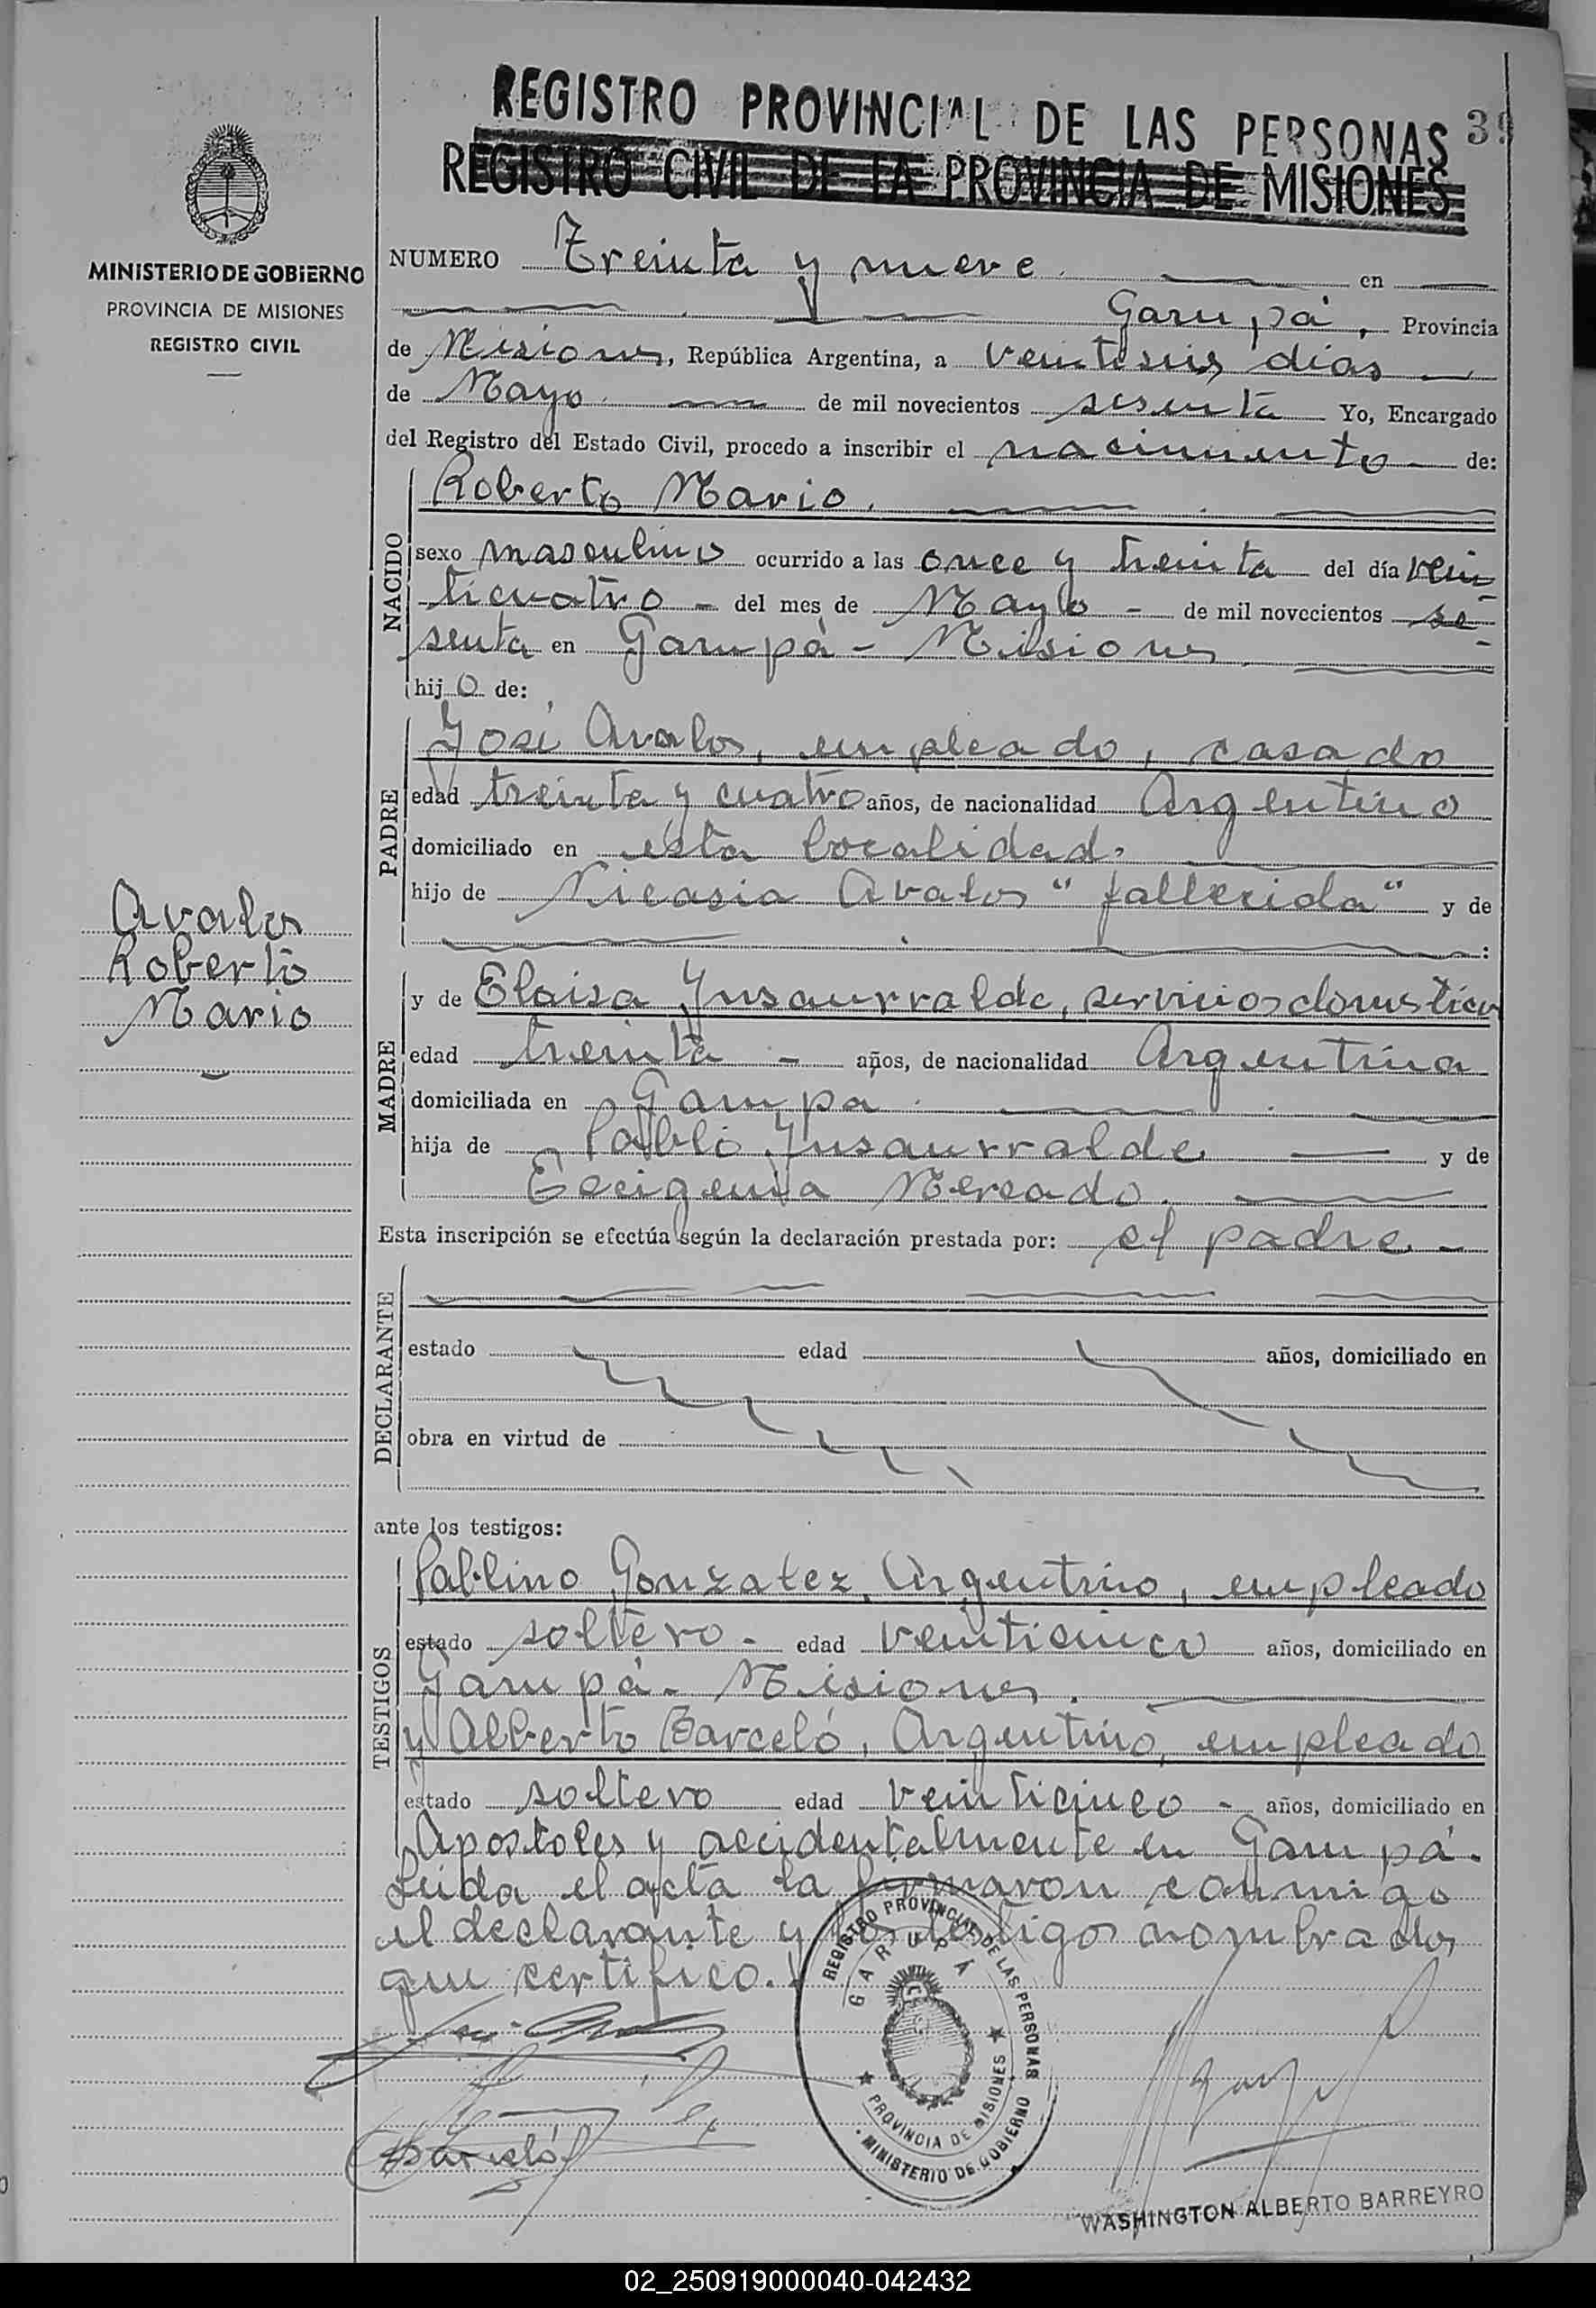 REGISTRO PROVINCIAL DE LAS PERSONAS 39
REGISTRO CIVIL DE LA PROVINCIA DE MISIONES
MINISTERIO DE GOBIERNO
PROVINCIA DE MISIONES
REGISTRO CIVIL
NUMERO Treinta y nueve en
Garupá, Provincia
de Misiones, República Argentina, a veintiseis días
de Mayo de mil novecientos sesenta Yo, Encargado
del Registro del Estado Civil, procedo a inscribir el nacimiento de:
NACIDO
Roberto Mario.
sexo masculino ocurrido a las once y treinta del día vein
ticuatro - del mes de Mayo - de mil novecientos se-
senta en Garupá - Misiones
hijo de:
PADRE
José Avalos, empleado, casado
edad treinta y cuatro años, de nacionalidad Argentino
domiciliado en esta localidad.
hijo de Nicasia Avalos "fallecida" y de
:
Avalos
Roberto
Mario
MADRE
y de Eloisa Ynsaurralde, servicios domesticos
edad treinta - años, de nacionalidad Argentina
domiciliada en Garupa.
hija de Pablo Ynsaurralde y de
Mercado.
Esta inscripción se efectúa según la declaración prestada por: el padre. -
DECLARANTE
estado edad años, domiciliado en
obra en virtud de
ante los testigos:
TESTIGOS
Pablino Gonzalez, Argentino, empleado
estado soltero. - edad veinticinco años, domiciliado en
Garupá - Misiones.
y Alberto Barceló, Argentino, empleado
estado soltero edad veinticinco - años, domiciliado en
Apostoles y accidentalmente en Garupá.
Leida el acta la firmaron conmigo
el declarante y los testigos nombrados
que certifico.
REGISTRO PROVINCIAL DE LAS PERSONAS
GARUPÁ
PROVINCIA DE MISIONES
MINISTERIO DE GOBIERNO
Barceló
WASHINGTON ALBERTO BARREYRO
02_250919000040-042432